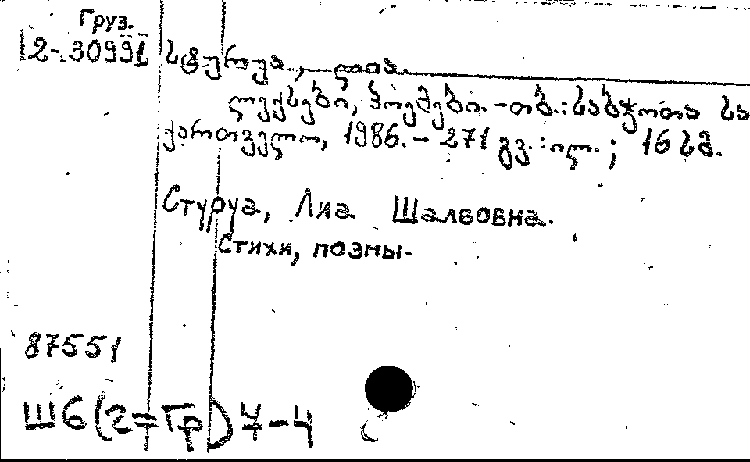 Груз.
12-30991 სტურუა, ლია.
ლექსები, პოემები. - თბ.: საბჭოთა სა
ქართველო, 1986. - 271 გვ.: ილ.; 16 სმ.
Стуруа, Лиа Шалвовна.
Стихи, поэмы.
87551
Ш6(2=Гр)7-4